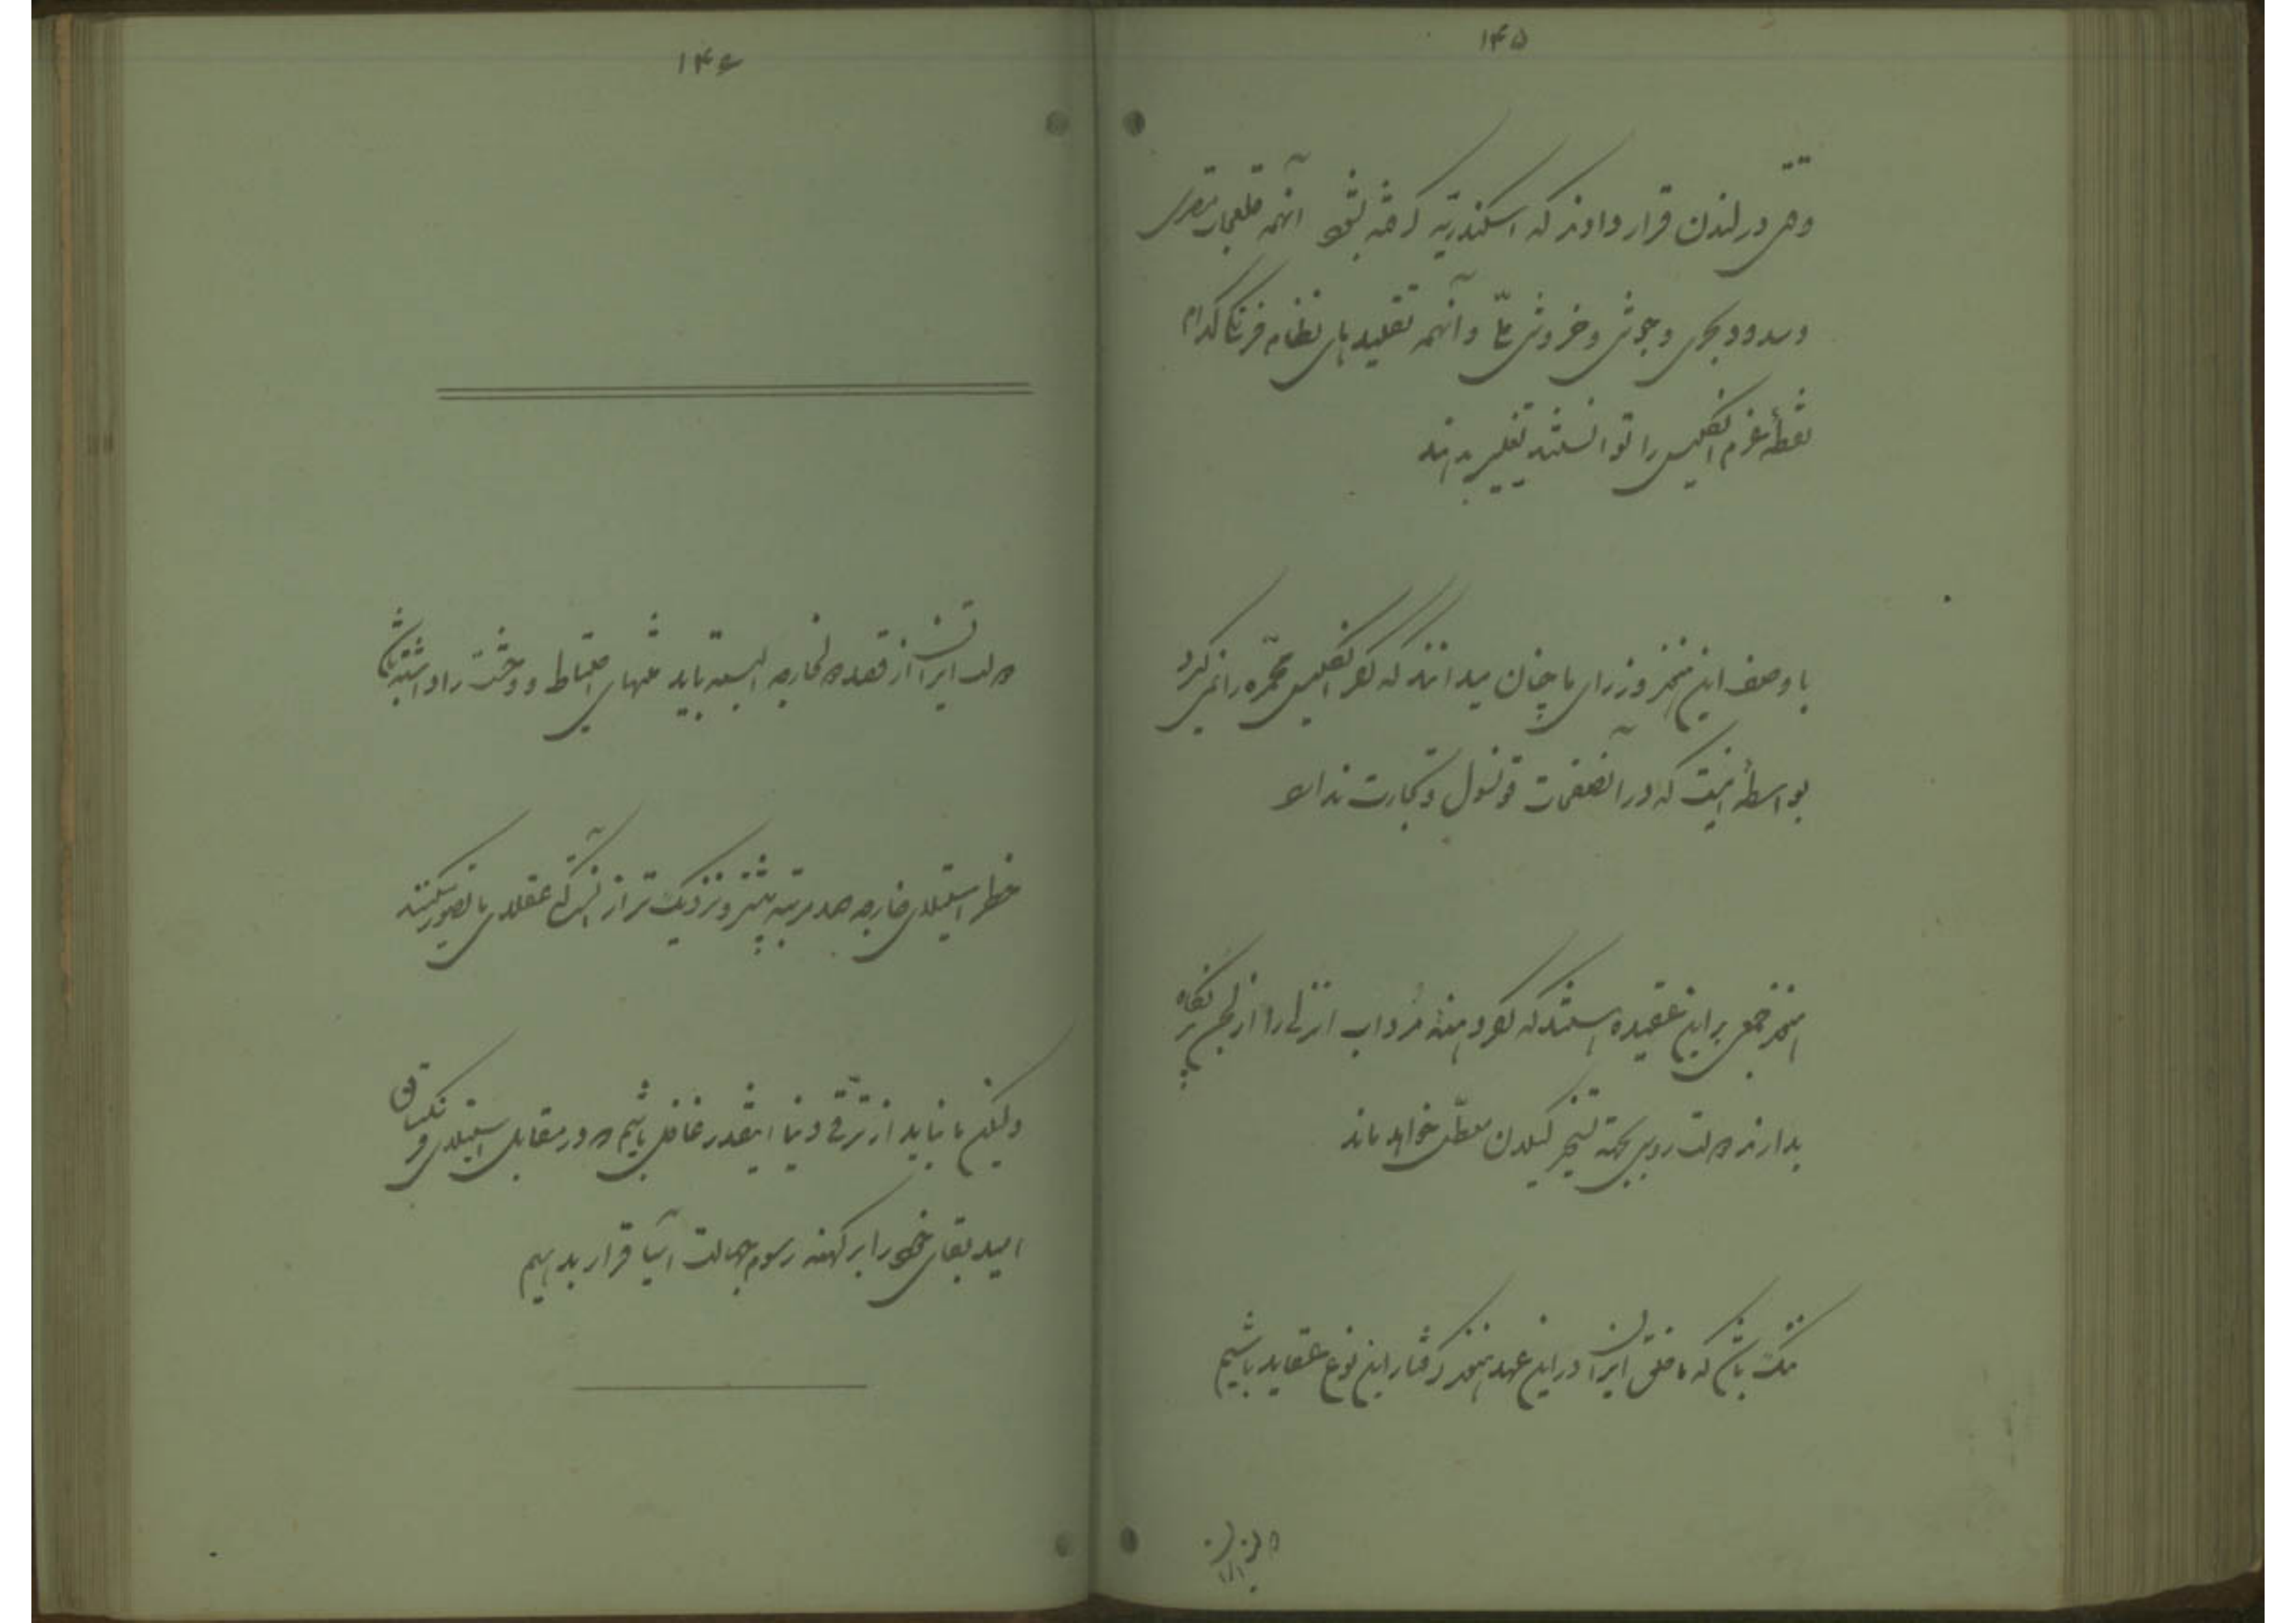 ۱۴۵
وقتی در لندن قرار دادند که اسکندریه گرفته بشود آنهمه قلعجات مصری
و سدود بحری و جوش و خروش ملی و آنهمه تقلیدهای نظام فرنگ کدام
نقطهٔ عزم انگلیس را توانستند تغییر بدهند
با وصف این هنوز وزرای ما چنان میدانند که اگر انگلیس محمره را نمیگیرد
بواسطهٔ اینست که در آنصفحات قونسول و تجارت ندارد
هنوز جمعی بر این عقیده هستند که اگر دهنهٔ مرداب انزلی را از لجن پر نگاه
بدارند دولت روس بجهة تسخیر گیلان معطل خواهد ماند
ننگت باشد که ما خلق ایران در این عهد هنوز گرفتار این نوع عقاید باشیم
۱۴۶
دولت ایران از قصد دول خارجه البته باید منتهای احتیاط و وحشت را داشته باشد
خطر استیلای خارجه صد مرتبه بیشتر و نزدیک تر از آنست که عقلای ما تصور میکنند
ولیکن ما نباید از ترقی دنیا اینقدر غافل باشیم که در مقابل استیلای فرنگستان
امید بقای خود را بر کهنه رسوم جهالت آسیا قرار بدهیم